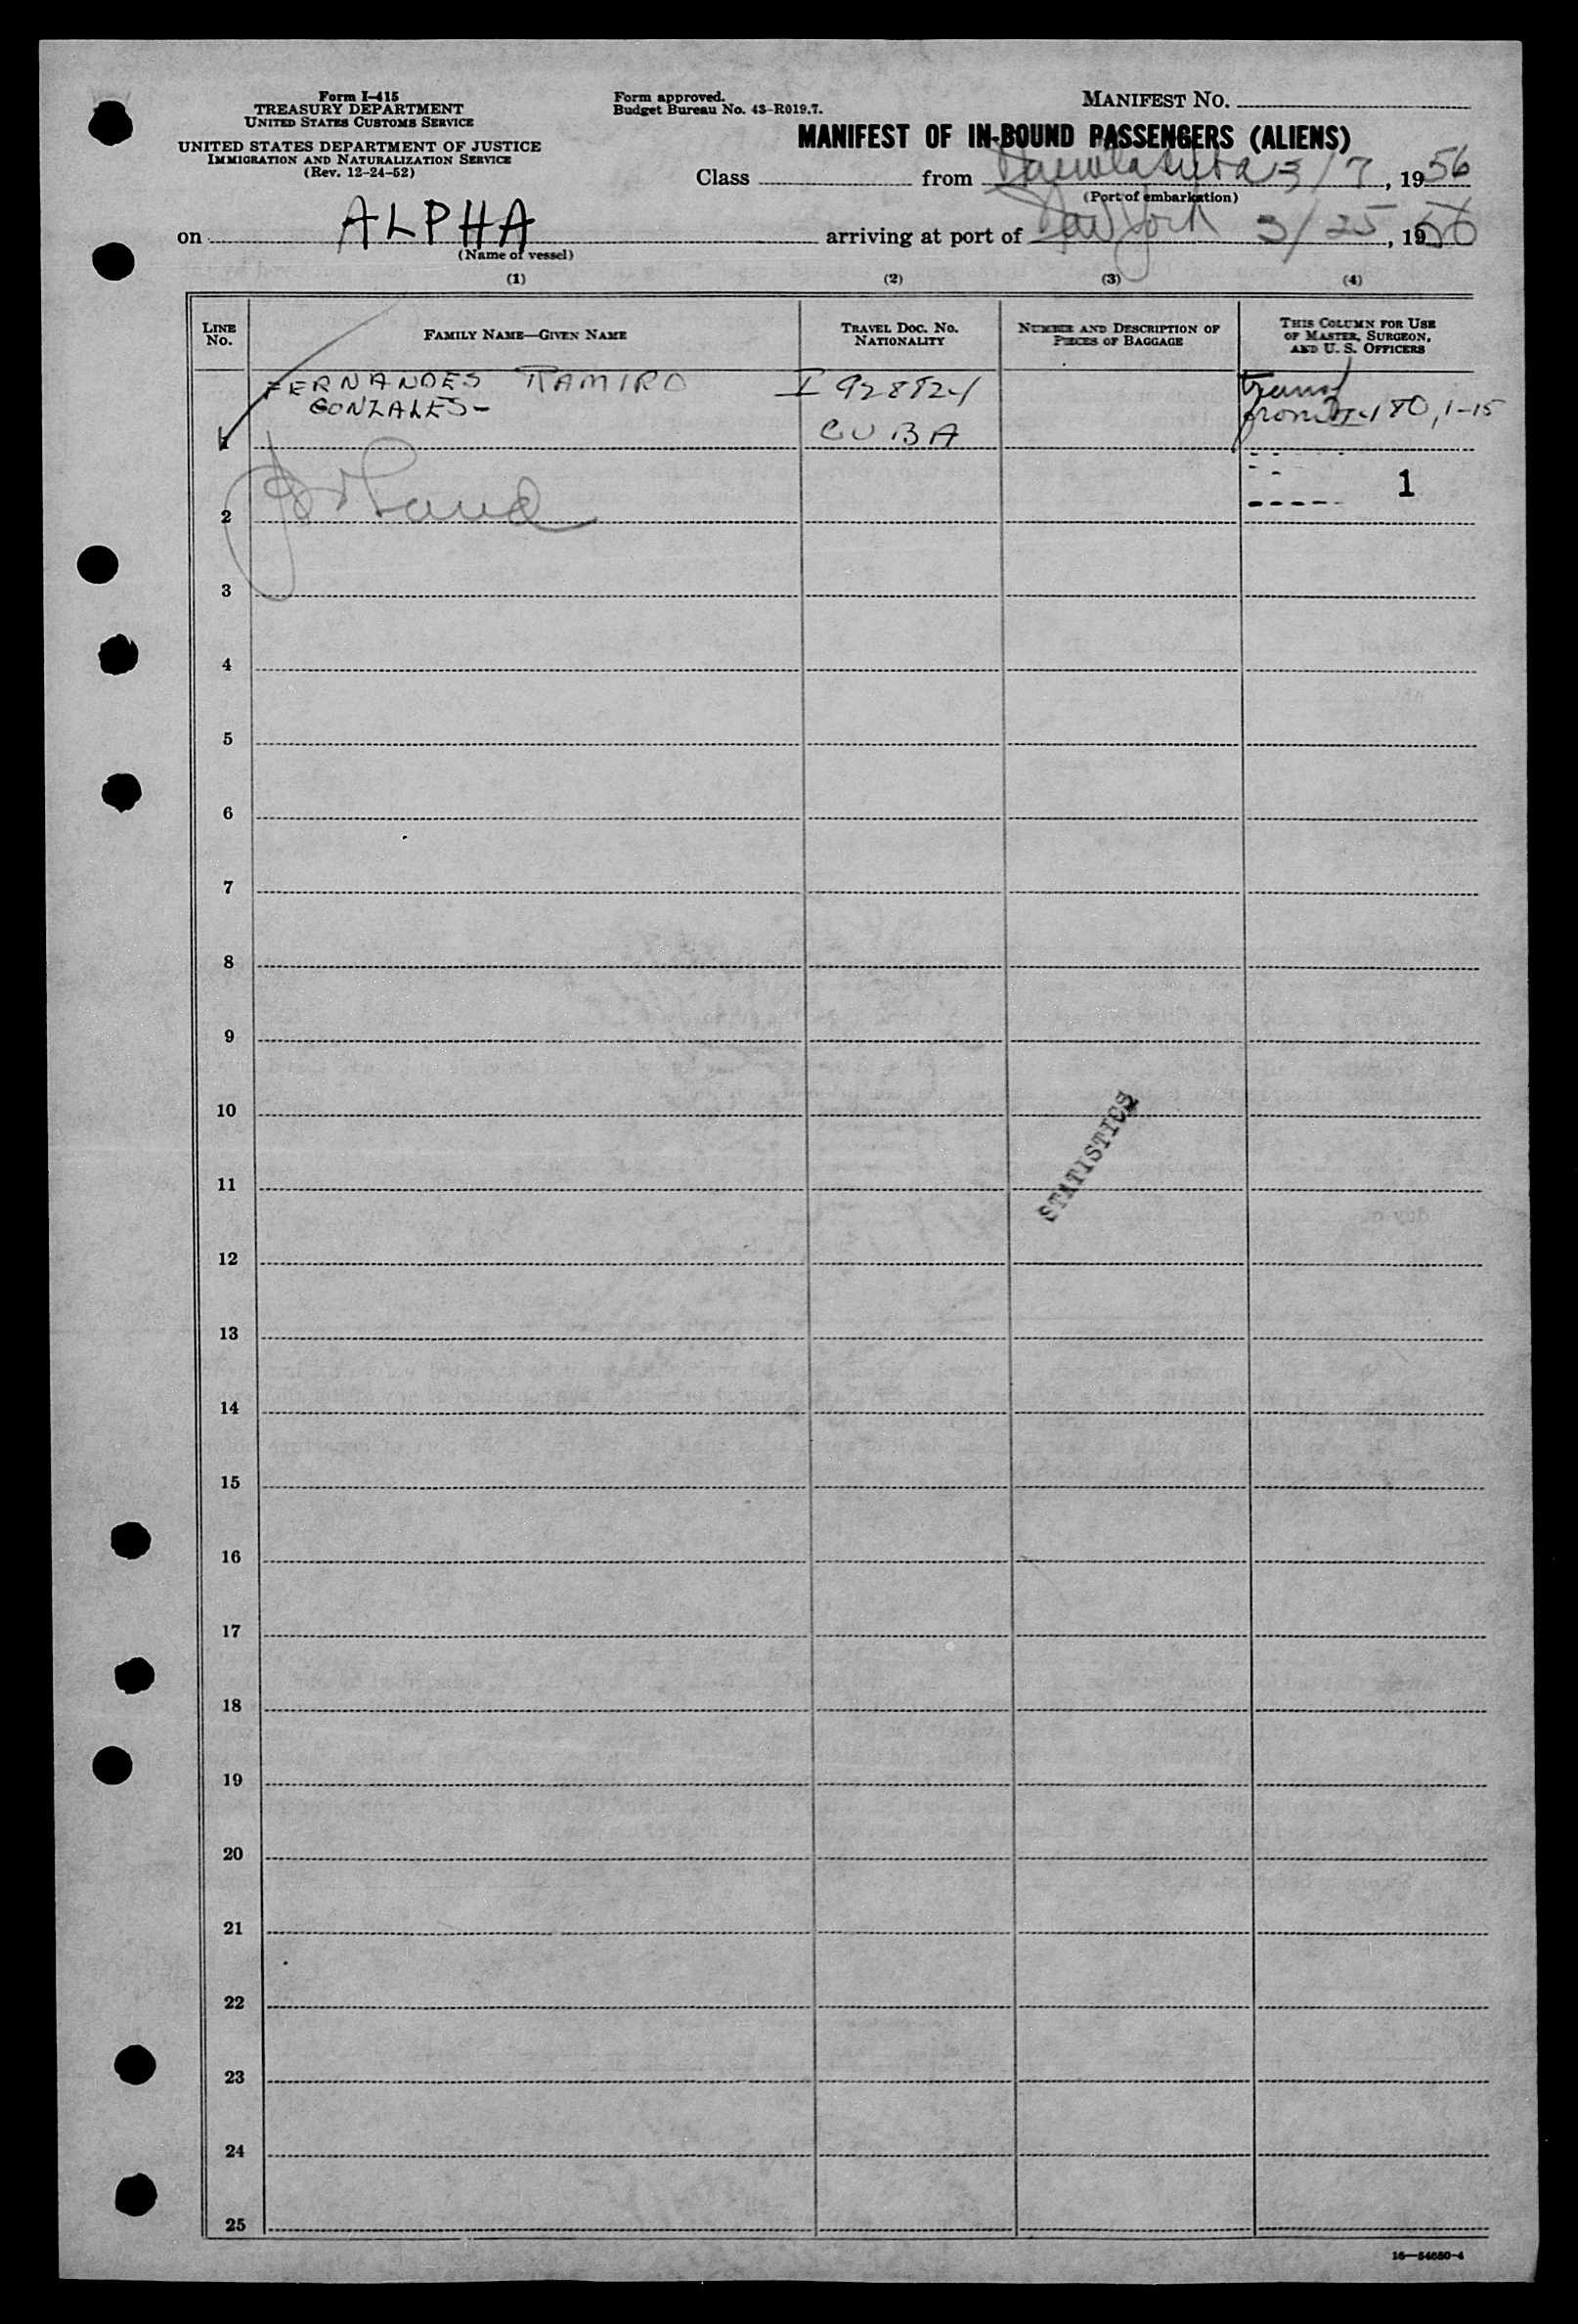 Form I-415
TREASURY DEPARTMENT
UNITED STATES CUSTOMS SERVICE
UNITED STATES DEPARTMENT OF JUSTICE
IMMIGRATION AND NATURALIZATION SERVICE
(Rev. 12-24-52)
Form approved.
Budget Bureau No. 43-R019.7.
MANIFEST NO.
MANIFEST OF IN-BOUND PASSENGERS (ALIENS)
Class from 3/7, 1956
(Port of embarkation)
on ALPHA arriving at port of New York 3/25, 1956
(Name of vessel)
(1) (2) (3) (4)
LINE NO.
FAMILY NAME—GIVEN NAME
TRAVEL DOC. NO. NATIONALITY
NUMBER AND DESCRIPTION OF PIECES OF BAGGAGE
THIS COLUMN FOR USE OF MASTER, SURGEON, AND U. S. OFFICERS
FERNANDES RAMIRO I 928924
GONZALES- from 480, 1-15
CUBA
1
2
3
4
5
6
7
8
9
10
STATISTICS
11
12
13
14
15
16
17
18
19
20
21
22
23
24
25
16—54650-4